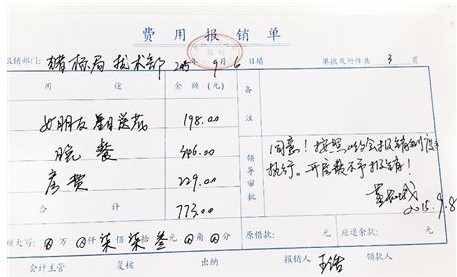 费用报销单
报销部门：猪标局技术部 2015年9月6日填 单据及附件共3页
用途 金额（元） 备注
女朋友 送花 198.00
晚餐 346.00
房费 229.00
合计 773.00
领导审批
同意！按照 报销制度
执行。开房数不予报销！
2015.9.8
额大写：⊗万⊗仟柒佰柒拾叁元⊗角⊗分 原借款： 元 应退余款： 元
会计主管 复核 出纳 报销人 王浩 领款人